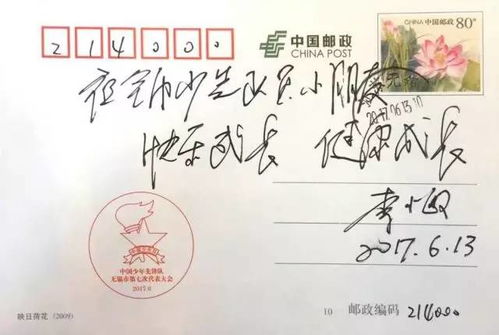 214000
中国邮政
CHINA POST
中国邮政
CHINA
80分
祝全市少先队员小朋友
2017.06.13
快乐成长 健康成长
李小敏
2017.6.13
中国少年先锋队
无锡市第七次代表大会
2017.6
映日荷花 (2009)
10 邮政编码 214000